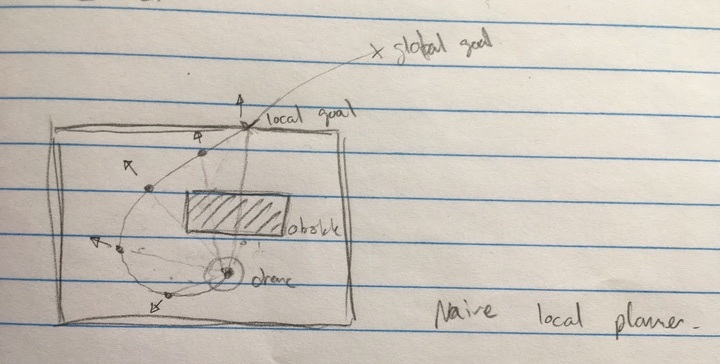 global goal
local goal
obstcle
drone
Naive local planner.